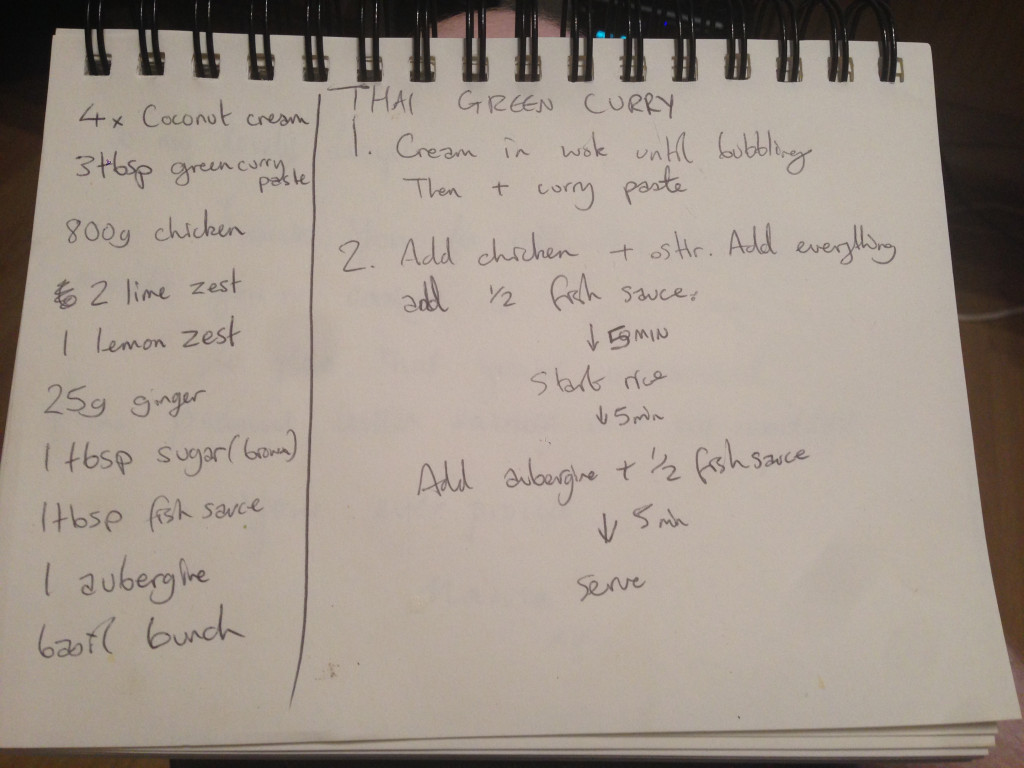 4x Coconut cream
3tbsp green curry
paste
800g chicken
2 lime zest
1 lemon zest
25g ginger
1 tbsp sugar (brown)
1tbsp fish sauce
1 aubergine
basil bunch
THAI GREEN CURRY
1. Cream in wok until bubbling
Then + curry paste
2. Add chicken + stir. Add everything
add 1/2 fish sauce.
↓ 5 MIN
Start rice
↓ 5 min
Add aubergine + 1/2 fish sauce
↓ 5 min
serve